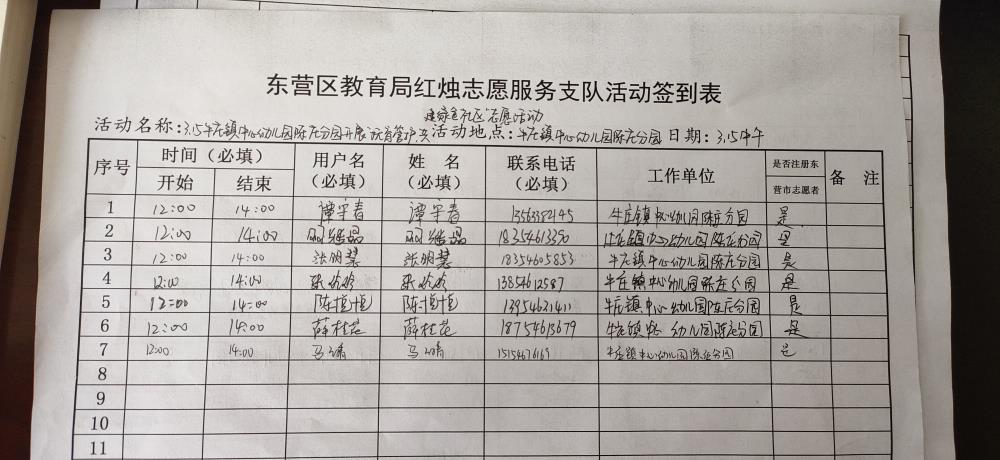 东营区教育局红烛志愿服务支队活动签到表
建绿色社区"志愿活动
活动名称:3.15牛庄镇中心幼儿园陈庄分园开展 活动地点:牛庄镇中心幼儿园陈庄分园 日期:3.15中午
序号 时间(必填) 用户名(必填) 姓 名(必填) 联系电话(必填) 工作单位 是否注册东营市志愿者 备 注
开始 结束
1 12:00 14:00 谭宇春 谭宇春 牛庄镇中心幼儿园陈庄分园 是
2 12:00 14:00 18354613390 牛庄镇中心幼儿园陈庄分园 是
3 12:00 14:00 张明慧 张明慧 18354605853 牛庄镇中心幼儿园陈庄分园 是
4 12:00 14:00 13854612587 牛庄镇中心幼儿园陈庄分园 是
5 12:00 14:00 陈恒恒 陈恒恒 13954621411 牛庄镇中心幼儿园陈庄分园 是
6 12:00 14:00 薛桂花 薛桂花 18754613679 牛庄镇中心幼儿园陈庄分园 是
7 12:00 14:00 马靖 马靖 15154676169 牛庄镇中心幼儿园陈庄分园 是
8
9
10
11